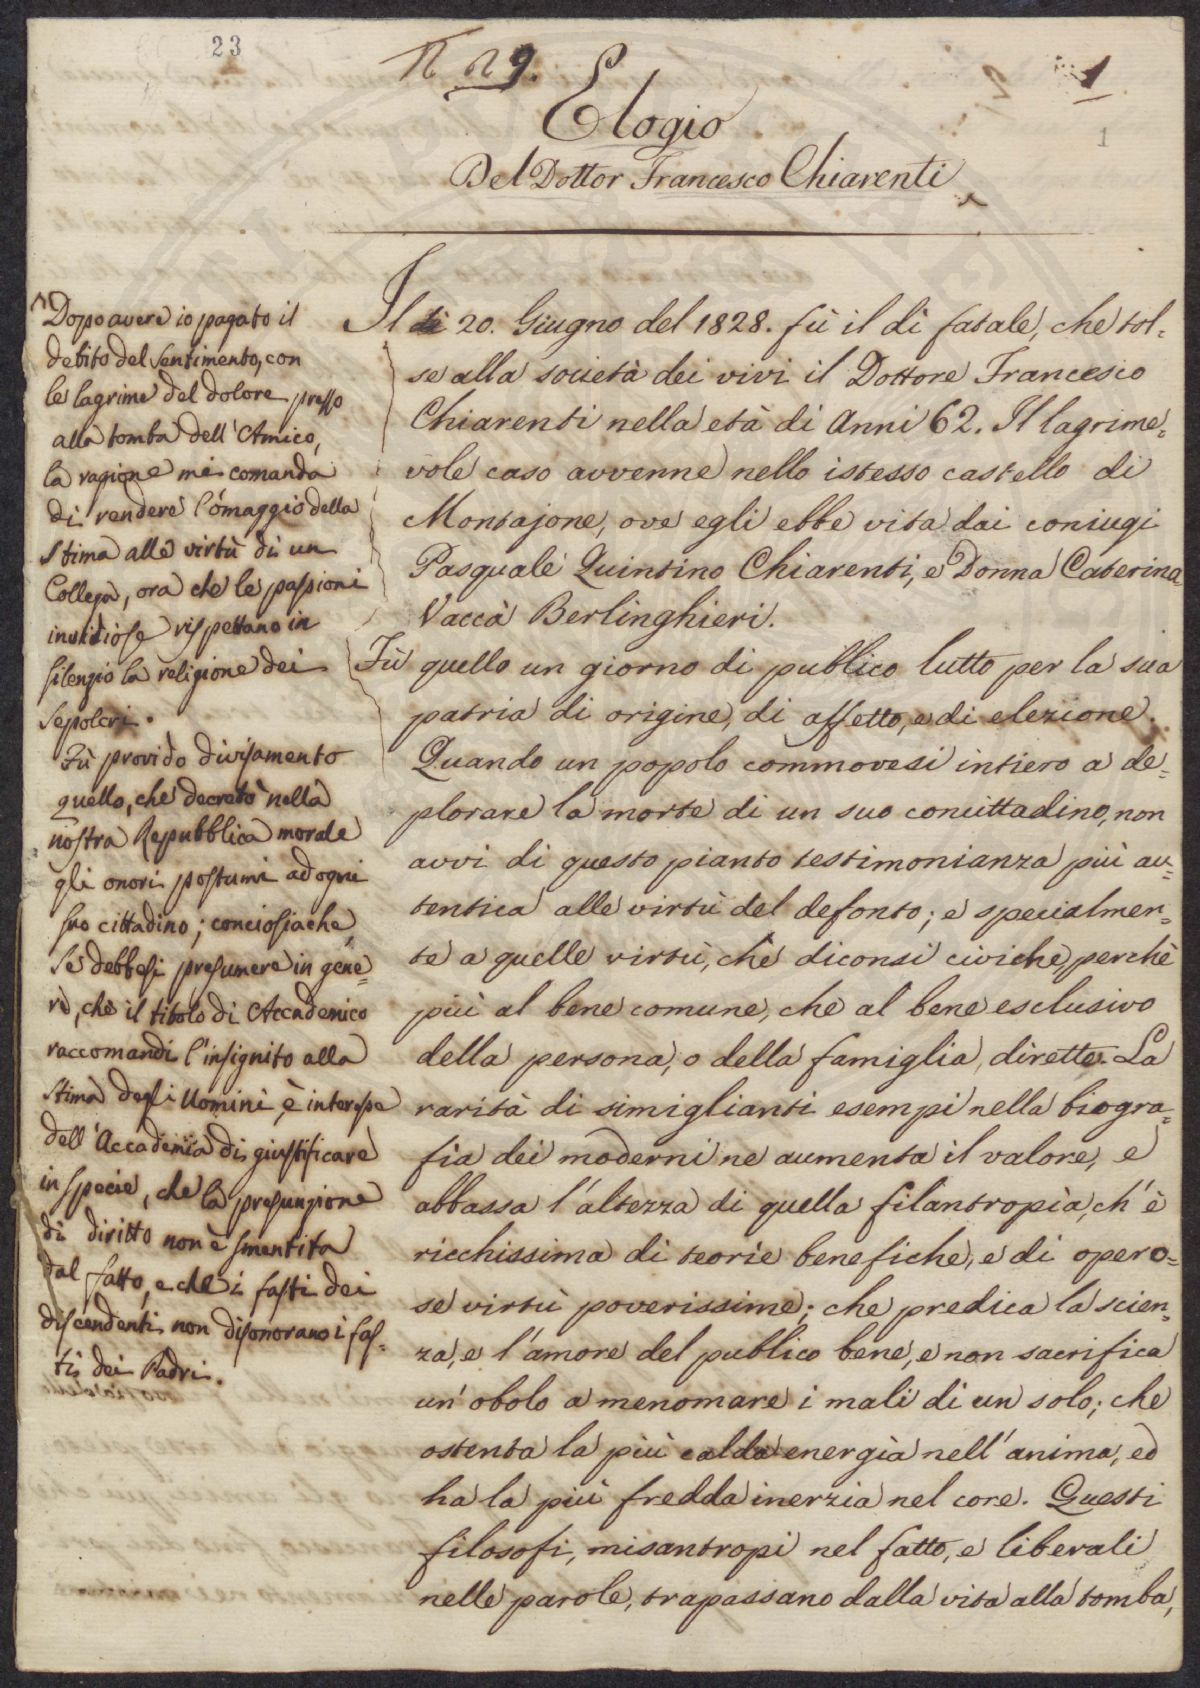 23
N 29.
1
1
Elogio
Del Dottor Francesco Chiarenti
^Dopo avere io pagato il
debito del sentimento, con
le lagrime del dolore presso
alla tomba dell'Amico,
la ragione mi comanda
di rendere l'omaggio della
stima alle virtù di un
Collega, ora che le passioni
invidiose rispettano in
silenzio la religione dei
sepolcri.
Fù provido divisamento
quello, che decretò nella
nostra Repubblica morale
gli onori postumi ad ogni
suo cittadino; conciosiache,
se debbasi presumere in gene=
re, che il titolo di Accademico
raccomandi l'insignito alla
stima degli Uomini, è interesse
dell'Accademia di giustificare
in specie, che la presunzione
di diritto non è smentita
dal fatto, e che i fasti dei
discendenti non disonorano i fas=
ti dei Padri.
Il dì 20. Giugno del 1828. fù il dì fatale, che tol=
se alla società dei vivi il Dottore Francesco
Chiarenti nella età di Anni 62. Il lagrime=
vole caso avvenne nello istesso castello di
Montajone, ove egli ebbe vita dai coniugi
Pasquale Quintino Chiarenti, e Donna Caterina
Vaccà Berlinghieri.
Fù quello un giorno di publico lutto per la sua
patria di origine, di affetto, e di elezione.
Quando un popolo commovesi intiero a de=
plorare la morte di un suo concittadino, non
avvi di questo pianto testimonianza più au=
tentica alle virtù del defonto; e specialmen=
te a quelle virtù, che diconsi civiche, perchè
più al bene comune, che al bene esclusivo
della persona, o della famiglia, dirette. La
rarità di simiglianti esempi nella biogra=
fia dei moderni ne aumenta il valore, e
abbassa l'altezza di quella filantropìa, ch'è
ricchissima di teorie benefiche, e di opero=
se virtù poverissima; che predica la scien=
za, e l'amore del publico bene, e non sacrifica
un'obolo a menomare i mali di un solo; che
ostenta la più calda energìa nell'anima, ed
ha la più fredda inerzia nel core. Questi
filosofi, misantropi nel fatto, e liberali
nelle parole, trapassano dalla vita alla tomba,